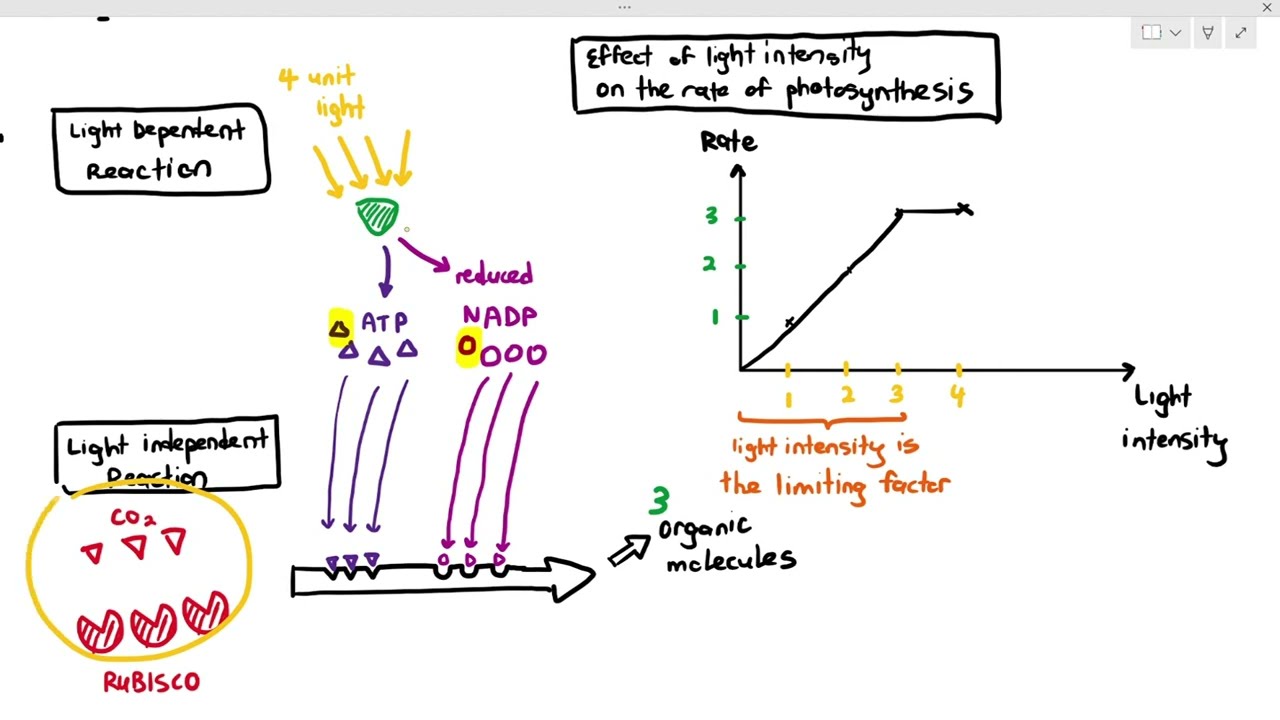 4 unit
light
Light Dependent
Reaction
reduced
ATP
NADP
Light independent
Reaction
CO2
RuBISCO
3
organic
molecules
Effect of light intensity
on the rate of photosynthesis
Rate
3
2
1
1 2 3 4
Light
intensity
light intensity is
the limiting factor